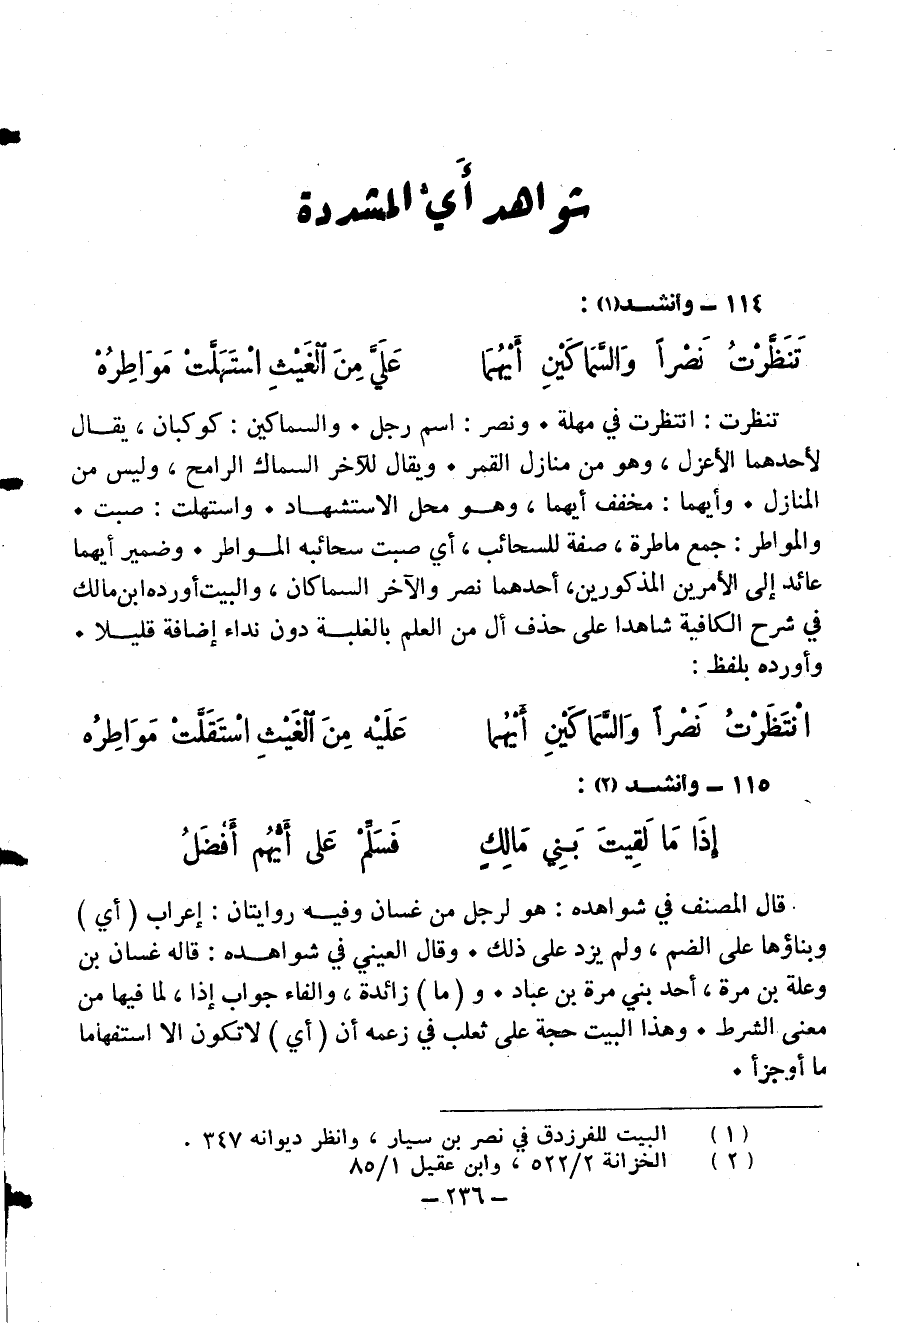 شواهد أَيّ المشددة
١١٤ – وأنشد(١) :
تَنَظَّرْتُ نَصْراً وَالسَّمَاكَيْنِ أَيْهُمَا عَلَيَّ مِنَ الْغَيْثِ اسْتَهَلَّتْ مَوَاطِرُهْ
تنظرت : انتظرت في مهلة . ونصر : اسم رجل . والسماكين : كوكبان ، يقال
لأحدهما الأعزل ، وهو من منازل القمر . ويقال للآخر السماك الرامح ، وليس من
المنازل . وأيهما : مخفف أيهما ، وهو محل الاستشهاد . واستهلت : صبت .
والمواطر : جمع ماطرة ، صفة للسحائب ، أي صبت سحائبه المواطر . وضمير أيهما
عائد إلى الأمرين المذكورين، أحدهما نصر والآخر السماكان ، والبيت أورده ابن مالك
في شرح الكافية شاهدا على حذف أل من العلم بالغلبة دون نداء إضافة قليلا .
وأورده بلفظ :
انْتَظَرْتُ نَصْراً وَالسَّمَاكَيْنِ أَيْهُما عَلَيْهِ مِنَ الْغَيْثِ اسْتَقَلَّتْ مَوَاطِرُه
١١٥ – وأنشد (٢) :
إِذَا مَا لَقِيتَ بَنِي مَالِكٍ فَسَلِّمْ عَلى أَيُّهُم أَفْضَلُ
قال المصنف في شواهده : هو لرجل من غسان وفيه روايتان : إعراب ( أي )
وبناؤها على الضم ، ولم يزد على ذلك . وقال العيني في شواهده : قاله غسان بن
وعلة بن مرة ، أحد بني مرة بن عباد . و ( ما ) زائدة ، والفاء جواب إذا ، لما فيها من
معنى الشرط . وهذا البيت حجة على ثعلب في زعمه أن ( أي ) لاتكون الا استفهاما
ما أوجزأ .
(١) البيت للفرزدق في نصر بن سيار ، وانظر ديوانه ٣٤٧ .
(٢) الخزانة ٥٢٢/٢ ، وابن عقيل ٨٥/١
– ٢٣٦ –